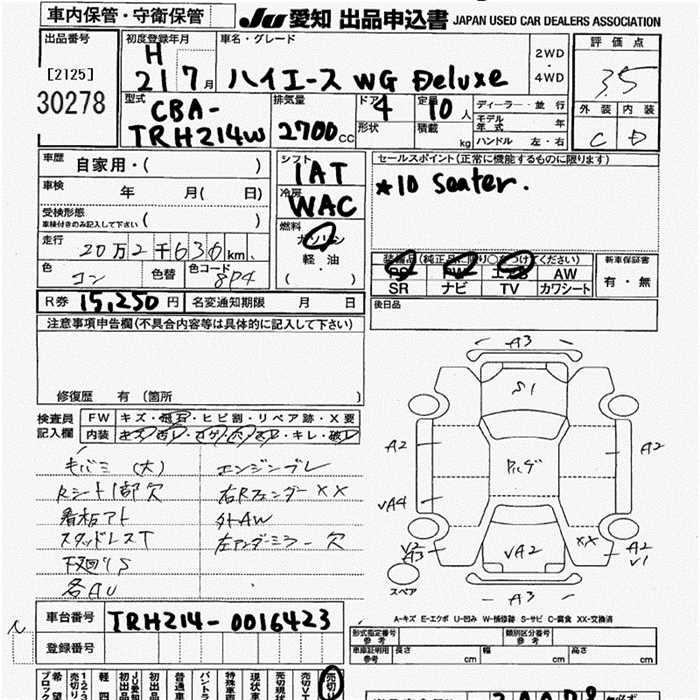 車内保管・守衛保管
JU 愛知 出品申込書 JAPAN USED CAR DEALERS ASSOCIATION
出品番号
[2125]
30278
初度登録年月
H
21 7月
車名・グレード
ハイエース WG Deluxe
2WD
・
4WD
評価点
3.5
外装 内装
C D
型式
CBA-
TRH214W
排気量
2700 cc
ドア 4
形状
定員 10 人
積載 kg
ディーラー・並行
モデル年式 年
ハンドル 左・右
車歴 自家用・( )
車検 年 月( 日)
受検形態
車検付きのみ記入して下さい ( )
走行 20万2千636km
色 コン 色替 色コード 8P4
R券 15,250円 名変通知期限 月 日
シフト
IAT
冷房
WAC
燃料
ガソリン
軽・油
( )
セールスポイント(正常に機能するものに限ります)
*10 Seater.
装備品(純正品に限り○をつけてください)
PS PW エアB AW
SR ナビ TV カワシート
新車保証書
有・無
後日品
注意事項申告欄(不具合内容等は具体的に記入して下さい)
修復歴 有(箇所 )
検査員
記入欄
FW キズ・飛石・ヒビ割・リペア跡・X要
内装 キズ・汚レ・コゲ・穴・スレ・キレ・破レ
エンジンブレ
Rシート1部欠 右Rフェンダー××
看板アト 外AW
スタッドレスT 左アンダーミラー欠
下回りS
各AU
A3
S1
A2
A2
VA4
VA2
××
A3
A2
V1
A3
スペア
A-キズ E-エクボ U-凹み W-補修跡 S-サビ C-腐食 XX-交換済
車台番号 TRH214-0016423
登録番号
形式指定番号
参考
類別区分番号
参考
車庫証明用
参考
長さ cm 幅 cm 高さ cm
売切